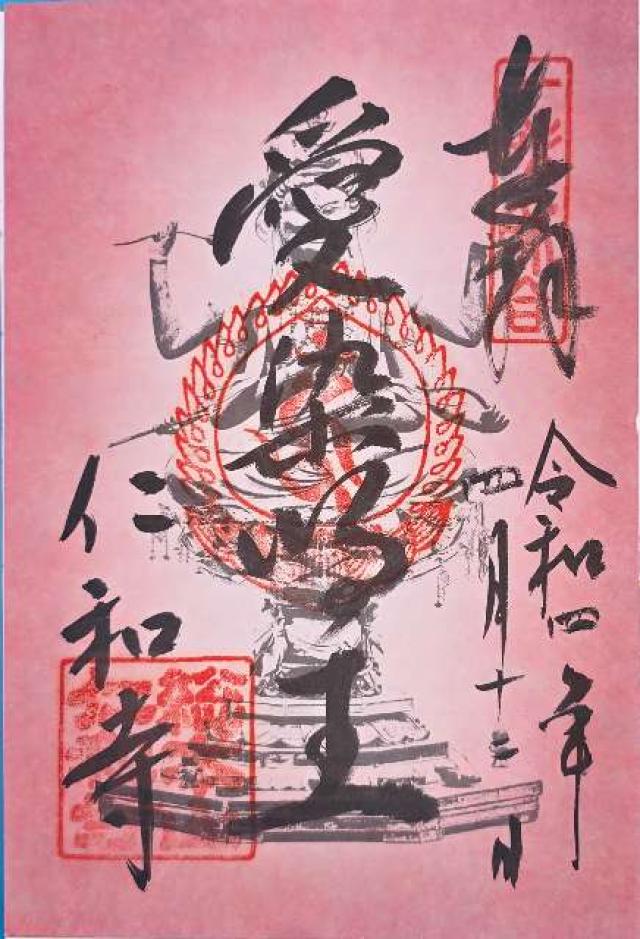 奉拝
令和四年
四月十二日
愛染明王
仁和寺